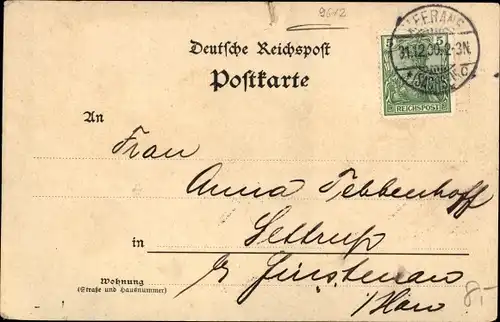 9612
Deutsche Reichspost
Postkarte
5 5
REICHSPOST
31.12.00. 2-3N.
An
Frau
Anna Tebbenhoff
in Settrup
b/ Fürstenau
/Han
Wohnung
(Straße und Hausnummer)
8,-